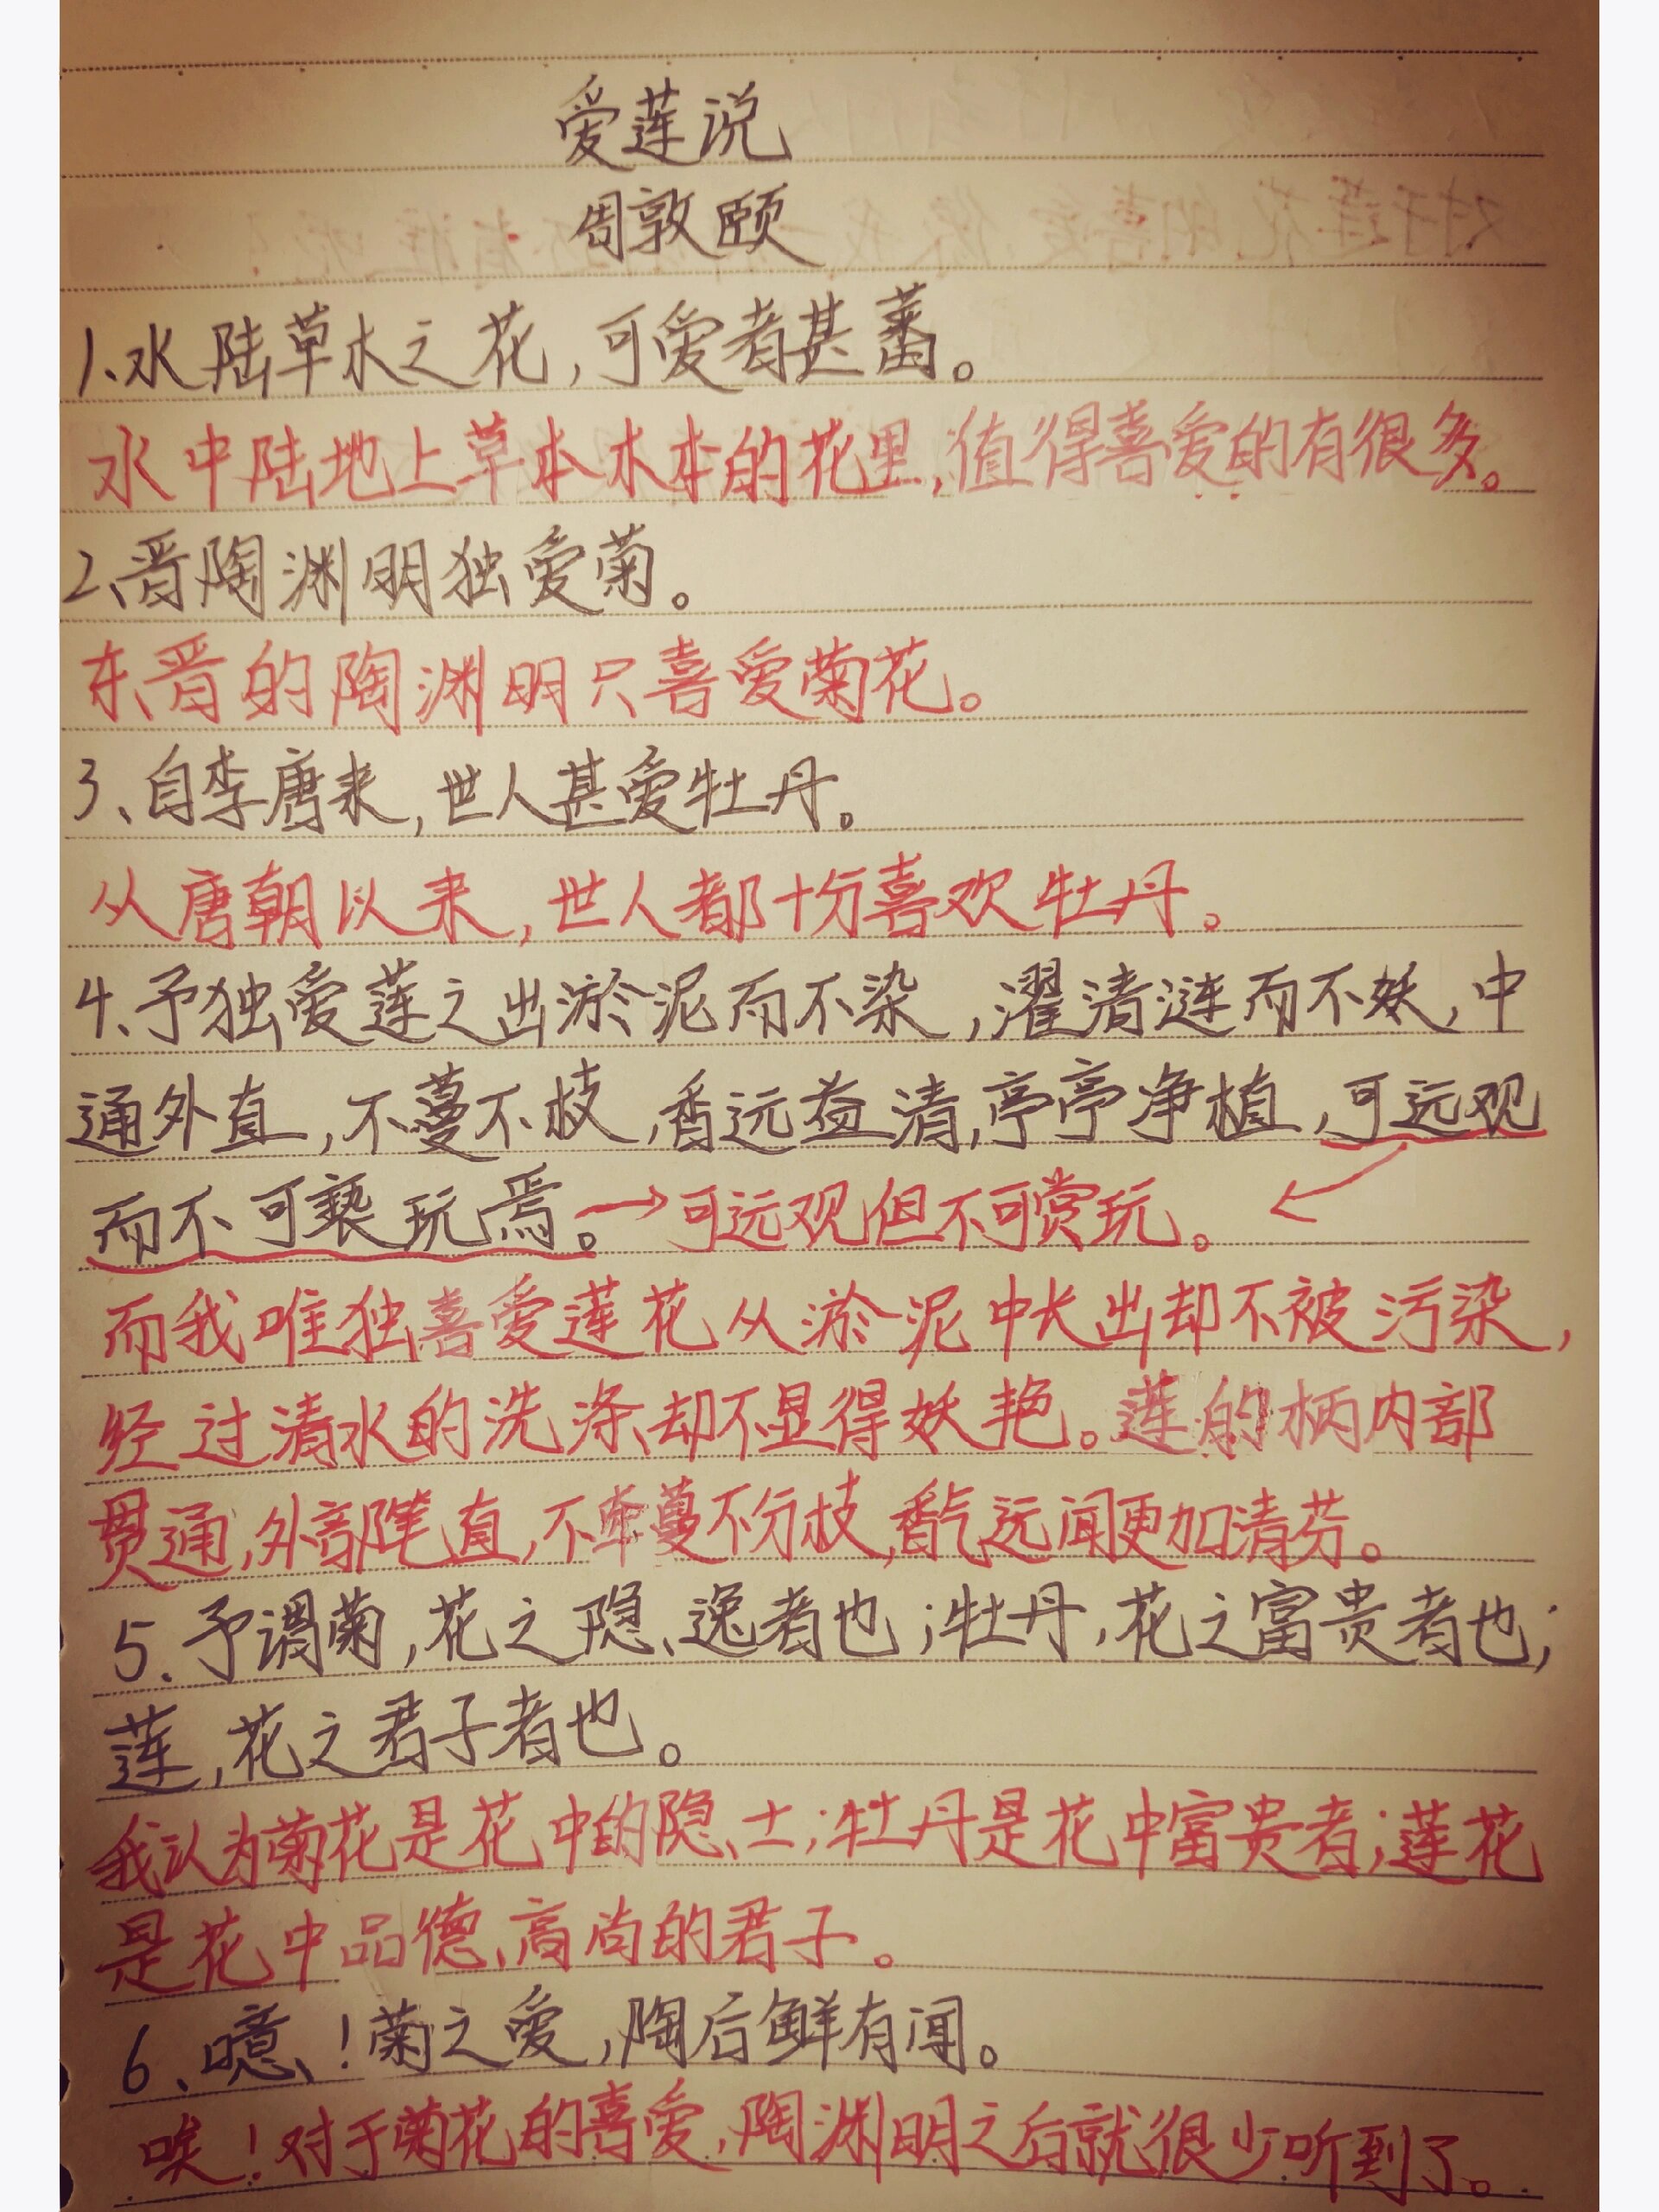 爱莲说
周敦颐
1、水陆草木之花,可爱者甚蕃。
水中陆地上草本木本的花里,值得喜爱的有很多。
2、晋陶渊明独爱菊。
东晋的陶渊明只喜爱菊花。
3、自李唐来,世人甚爱牡丹。
从唐朝以来,世人都十分喜欢牡丹。
4、予独爱莲之出淤泥而不染,濯清涟而不妖,中
通外直,不蔓不枝,香远益清,亭亭净植,可远观
而不可亵玩焉。→可远观但不可赏玩。
而我唯独喜爱莲花从淤泥中长出却不被污染,
经过清水的洗涤却不显得妖艳。莲的柄内部
贯通,外部笔直,不牵蔓不分枝,香气远闻更加清芬。
5、予谓菊,花之隐逸者也;牡丹,花之富贵者也;
莲,花之君子者也。
我认为菊花是花中的隐士;牡丹是花中富贵者;莲花
是花中品德高尚的君子。
6、噫!菊之爱,陶后鲜有闻。
唉!对于菊花的喜爱,陶渊明之后就很少听到了。